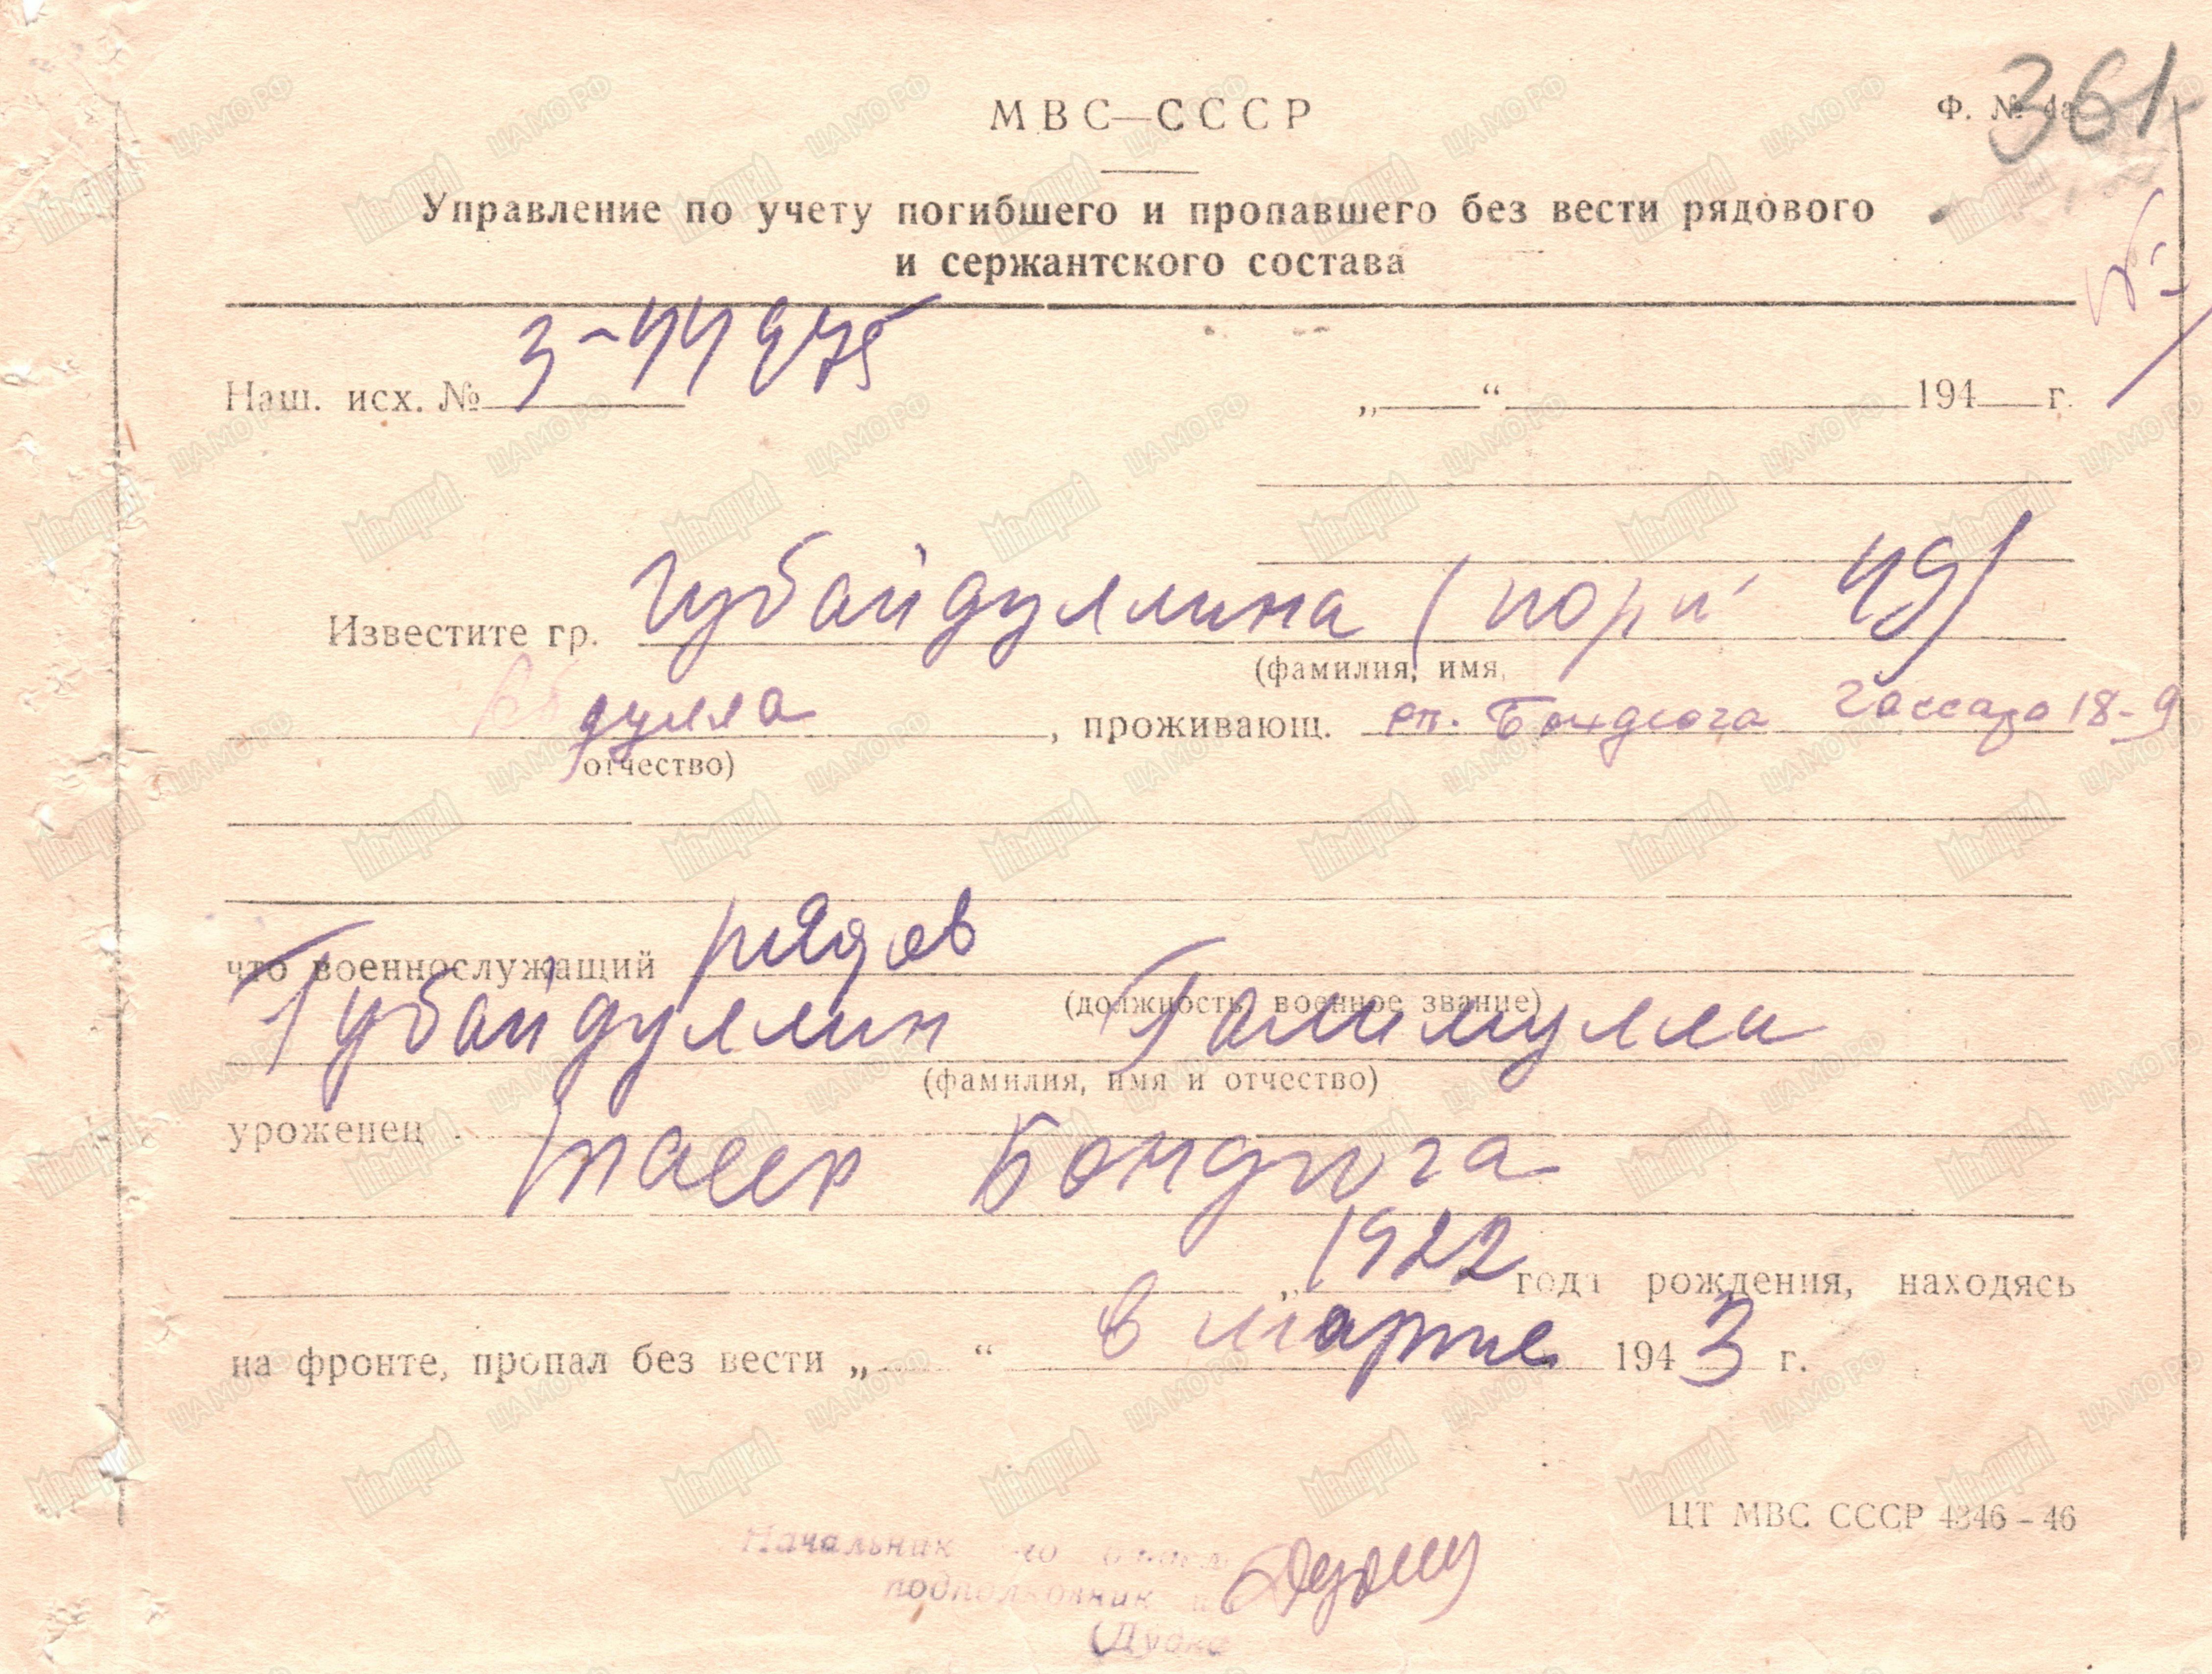 361
МВС—СССР
Ф. №
Управление по учету погибшего и пропавшего без вести рядового
и сержантского состава
Наш. исх. № 3-44275 „ “ 194 г.
Известите гр. Губайдуллина
(фамилия, имя,
Абдулла , проживающ. рп. Бондюга 18-9
отчество)
что военнослужащий рядов
(должность, военное звание)
Губайдуллин Галимулла
(фамилия, имя и отчество)
уроженец
тасср Бондюга
„ 1922 года рождения, находясь
на фронте, пропал без вести „ “ в марте 1943 г.
ЦТ МВС СССР 4346-46
Начальник
подполковник